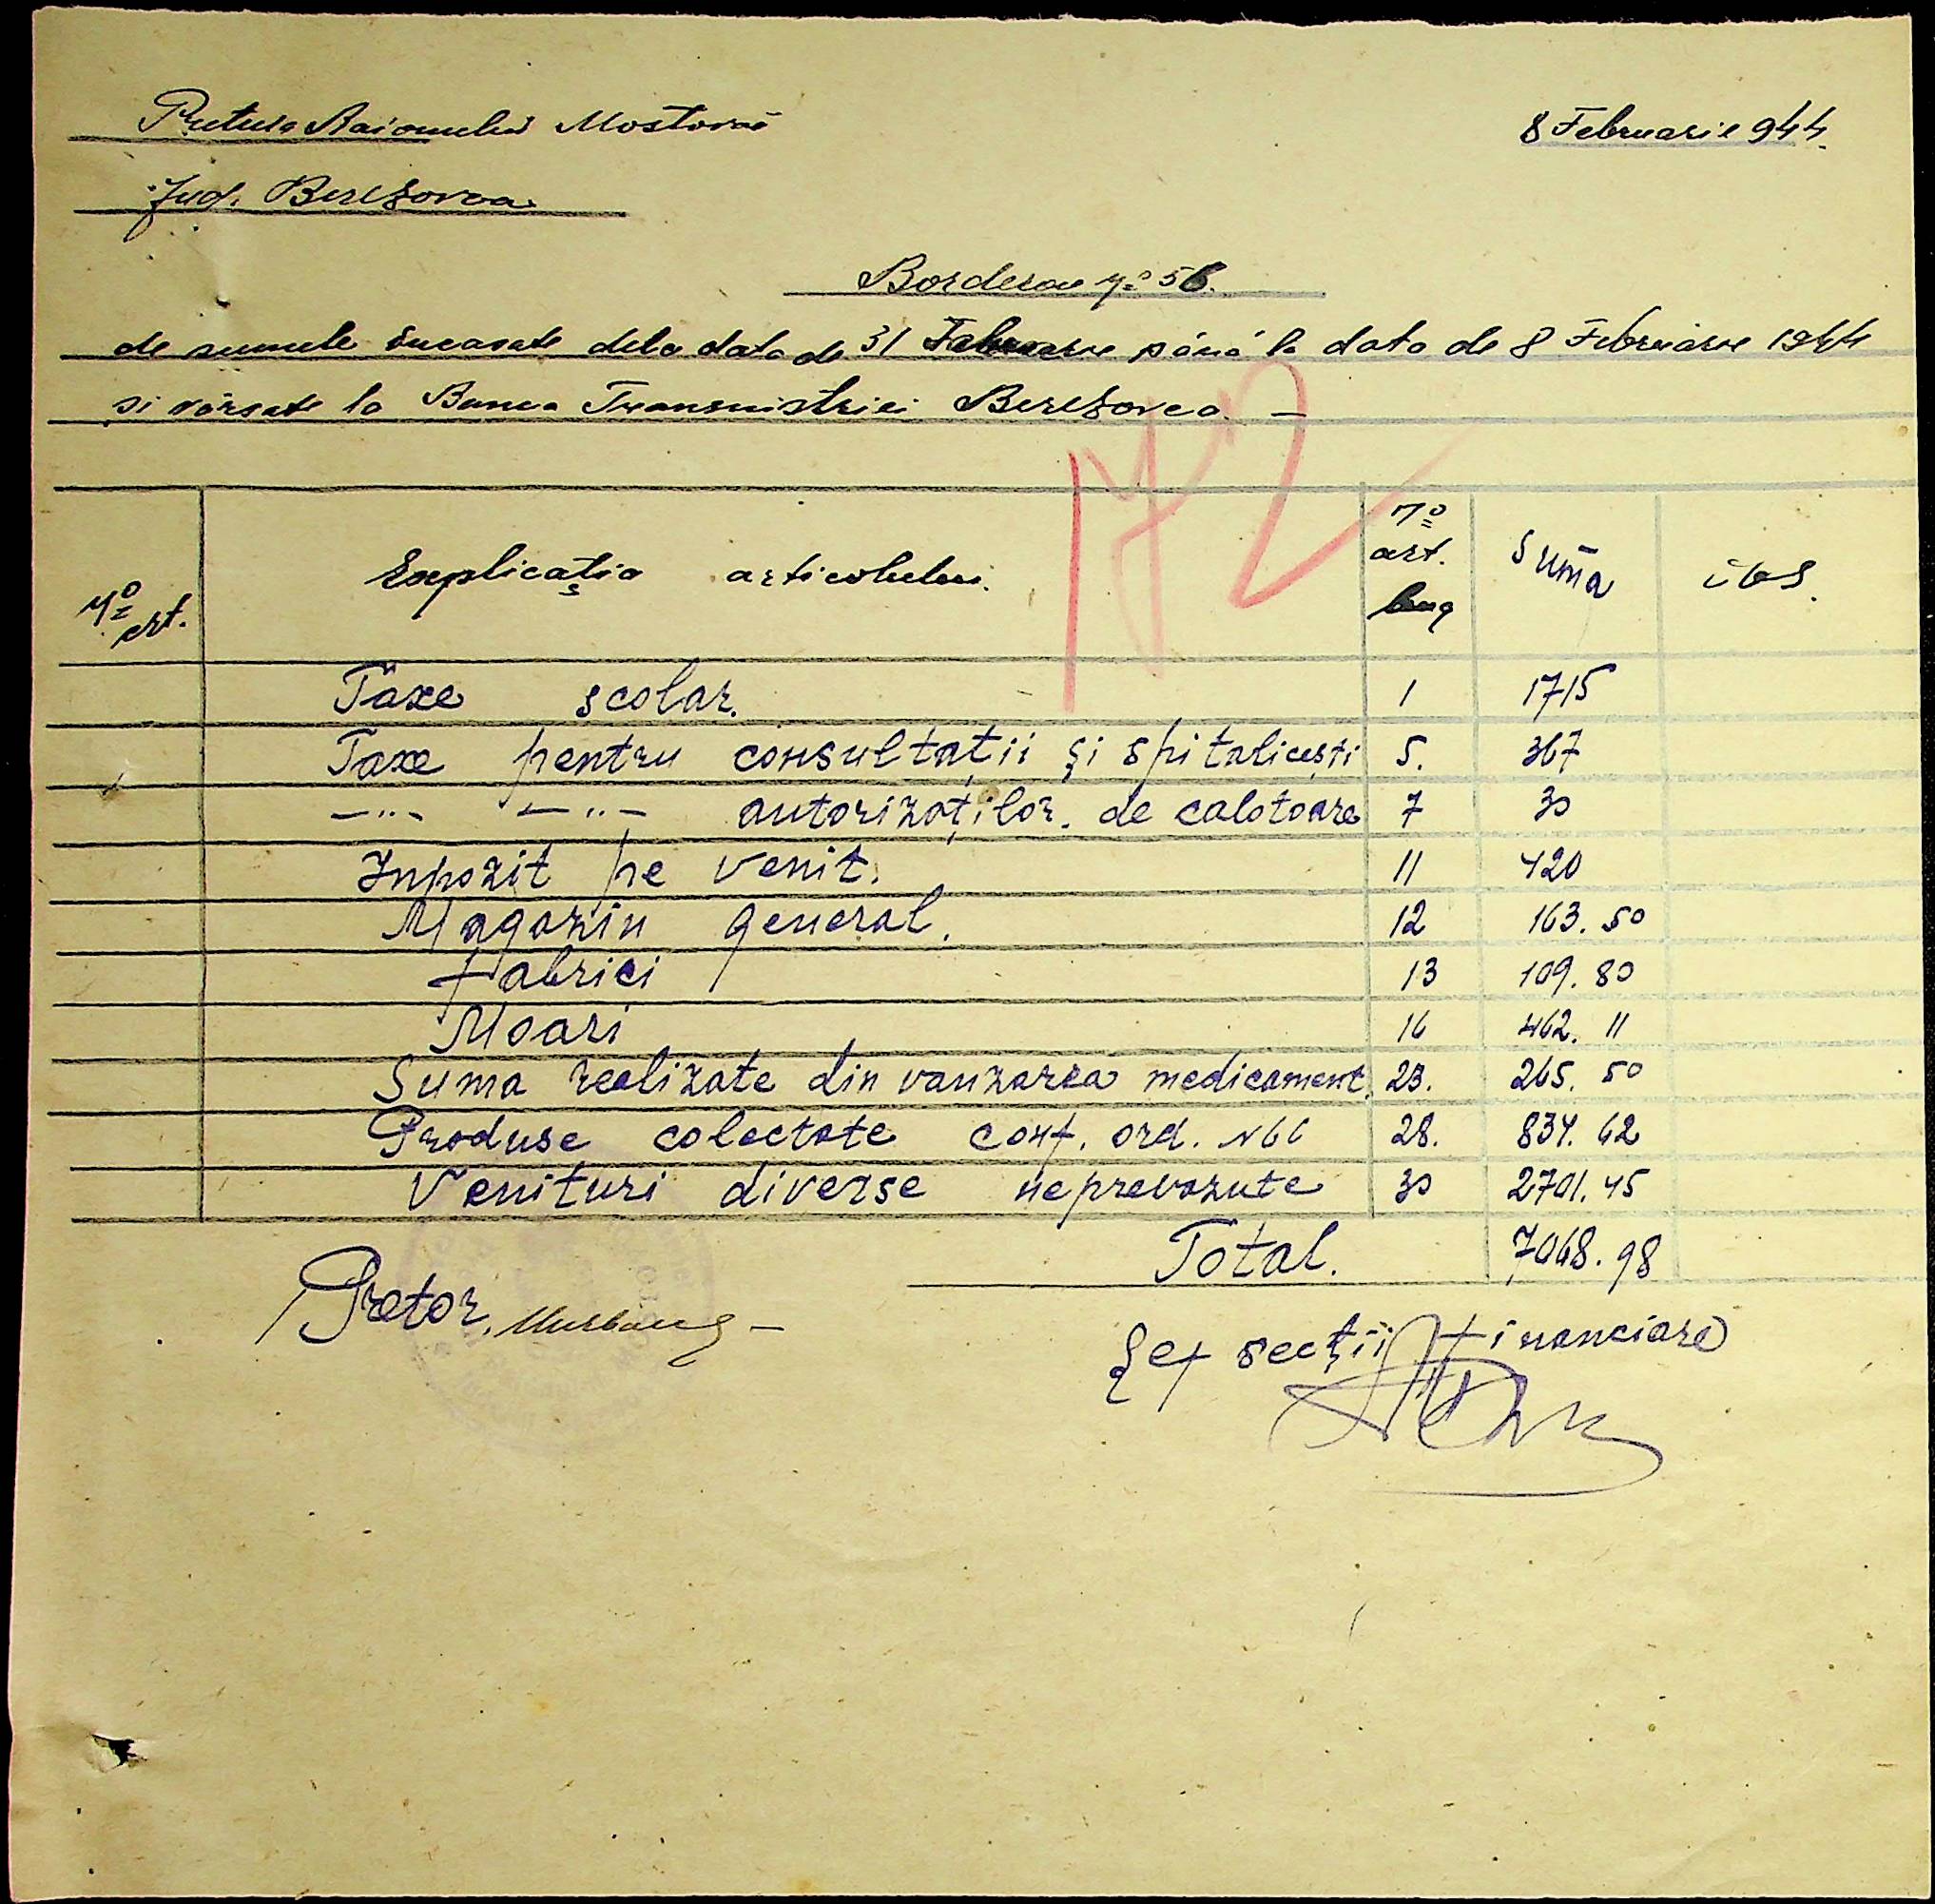 Pretura Raionului Mostovoi
8 Februarie 944.
Jud. Berezovca
Borderou No 56.
de sumele încasate dela data de 31 Februarie până la data de 8 Februarie 1944
și vărsate la Banca Transnistriei Berezovca. —
172
No crt. Explicația articolului. No art. bug Suma Obs.
Taxe școlar. 1 1715
Taxe pentru consultații și spitalicești 5. 367
—"— —"— autorizaților. de calotoare 7 30
Inpozit pe venit. 11 420
Magazin general. 12 163.50
fabrici 13 109.80
Moari 16 462.11
Suma realizate din vanzarea medicament. 23. 265.50
Produse colectate conf. ord. N66 28. 834.62
Venituri diverse neprevazute 30 2701.45
Total. 7068.98
Pretor,
Șef secții financiare